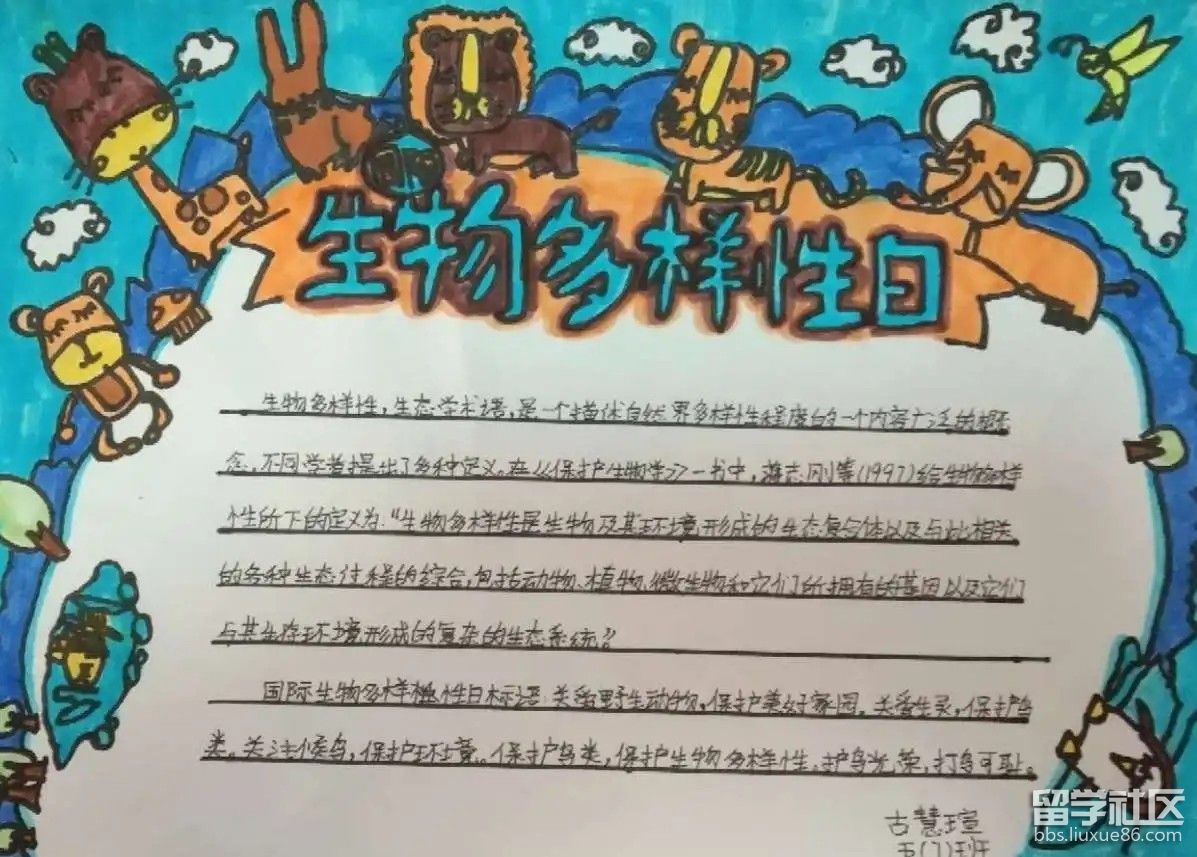 生物多样性日
生物多样性，生态学术语，是一个描述自然界多样性程度的一个内容广泛的概
念。不同学者提出了多种定义。在《保护生物学》一书中，蒋志刚等(1997)给生物多样
性所下的定义为:“生物多样性是生物及其环境形成的生态复合体以及与此相关
的各种生态过程的综合，包括动物、植物、微生物和它们所拥有的基因以及它们
与其生存环境形成的复杂的生态系统”
国际生物多样性日标语 关爱野生动物，保护美好家园。关爱生灵，保护鸟
类。关注候鸟，保护环境。保护鸟类，保护生物多样性。护鸟光荣，打鸟可耻。
古慧瑄
五(7)班
留学社区
bbs.liuxue86.com